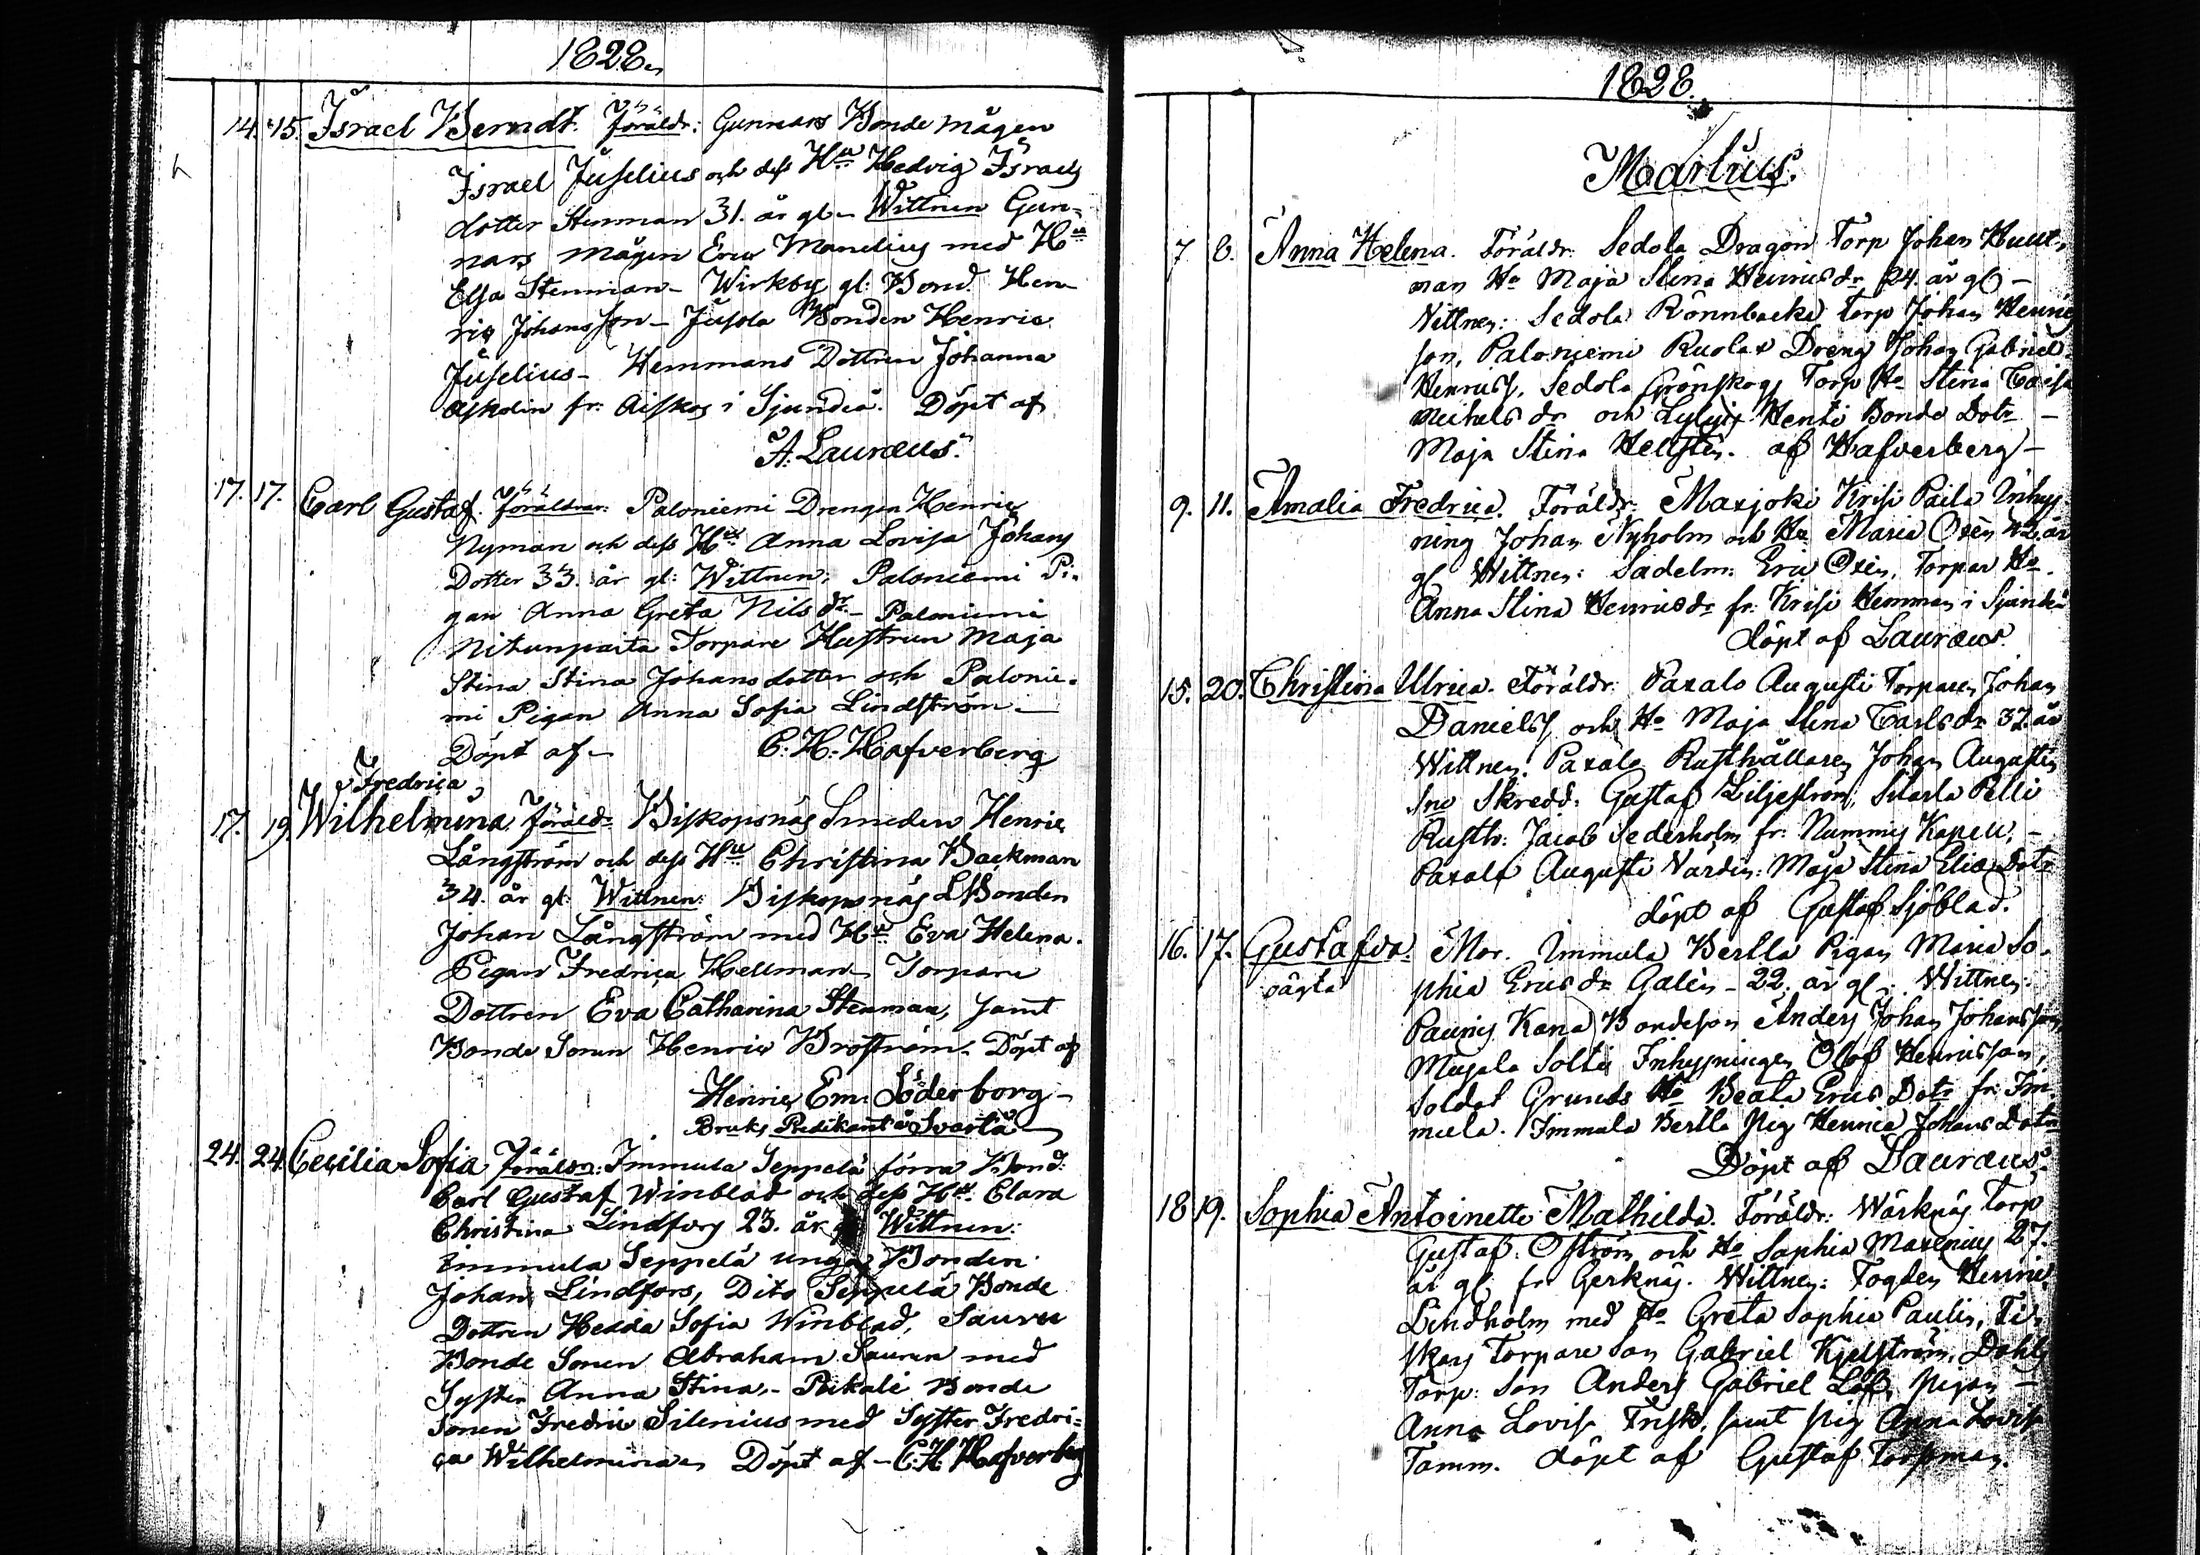 1828.
14. 15. Israel Berndt. Föräldr: Gunnars Bonde mågen
Israel Juselius och dess Hu Hedvig Israels
dotter Stenman 31. år gl - Wittnen Gun-
nars mågen Eric Manelius med Hu
Elsa Stenman - Wirkby gl: Bond. Hen-
ric Johansson - Jusola Bonden Henric
Juselius - Hemmans Dottren Johanna
Askolin fr: Aiskog i Sjundeå. Döpt af
A. Lauræus.
17. 17. Carl Gustaf. Föräldrar: Paloniemi Drengen Henric
Nyman och dess Hu Anna Lovisa Johans
Dotter 33. år gl: Wittnen: Paloniemi Pi-
gan Anna Greta Nils dr - Paloniemi
Nitunpaita Torpare Hustrun Maja
Stina Stina Johansdotter och Palonie-
mi Pigan Anna Sofia Lindström -
Döpt af - C. H. Hafverberg
Fredrica
17. 19. Wilhelmina. Föräldr Biskopsnäs Smeden Henric
Långström och dess Hu Christina Backman
34. år gl: Wittnen: Biskopsnäs Bonden
Johan Långström med Hu Eva Helena.
Pigan Fredrica Hellman Torpare
Dottren Eva Catharina Stenman, samt
Bonde Sonen Henric Broström. Döpt af
Henric Em: Söderborg -
Bruks Predikant å Svartå
24. 24. Cecilia Sofia Föräldrar: Immula Seppelä förra Bond:
Carl Gustaf Winblad och dess Hu. Clara
Christina Lindfors 23. år Wittnen:
Immula Seppelä unga Bonden
Johan Lindfors, Dito Seppelä Bonde
Dottren Hedda Sofia Winblad, Sauru
Bonde Sonen Abraham Sauren med
Syster Anna Stina - Pukale Bonde
Sonen Fredric Silenius med Syster Fredri-
ca Wilhelmina Döpt af - C. H. Hafverberg
1828.
Martius.
7. 8. Anna Helena. Föräldr: Sedola Dragon Torp Johan
man Ho Maja Stina Henricsdr 24. år gl -
Wittnen: Sedola Rönnbacka Torp Johan Henrics
son, Paloniemi Ruolax Dreng Johan Gabriel
Henricss, Sedola Grönskogs Torp Ho Stina Caisa
Michelsdr och Lylyis Henti Bonde Dotr -
Maja Stina Hellsten. af Hafverberg -
9. 11. Amalia Fredrica. Föräldr: Maxjoki Krisi Paila Inhys
ning Johan Nyholm och Ho Maria Oxén 42 år
gl Wittnen: Sadelm: Eric Oxén, Torpar Ho
Anna Stina Henricsdr fr: Krisi Hemman i Sjundeå
döpt af Lauræus.
15. 20. Christina Ulrica. Föräldr: Paxalo Augusti Torparen Johan
Danielss och Ho Maja Stina Carlsdr 37. år
Wittnen: Paxalo Rusthållaren Johan Augustin
Skredd: Gustaf Liljeström, Pelli
Rusth: Jacob Sederholm fr: Nummis Kapell. -
Paxalo Augusti Värdin: Maja Stina Eliæ Dotr
döpt af Gustaf Sjöblad.
16. 17. Gustafva. Mor. Immula Bertla Pigan Maria So-
oägta phia Ericsdr Galén - 22. år gl: Wittnen:
Paunis Kana Bondeson Anders Johan Johansson
Mujala Solti Inhysningen Olof Henricsson,
Soldat Grunds Ho Beata Erics Dotr fr: Im-
mula. Immula Bertla Pig Henrica Johans Dotr
Döpt af Lauræus.
18 19. Sophia Antoinette Mathilda. Föräldr: Wärknäs Torp
Gustaf Öström och Ho Sophia Maxenius 27.
år gl: fr Gerknäs. Wittnen: Fogden Henric
Lindholm med Ho Greta Sophia Paulin, Ti-
skars Torpare Son Gabriel Kjelström, Dahls
Torp: Son Anders Gabriel Löf, Pigan -
Anna Lovisa Frisk, samt Pig Anna Lovisa
Tamm. döpt af Gustaf Forsman.